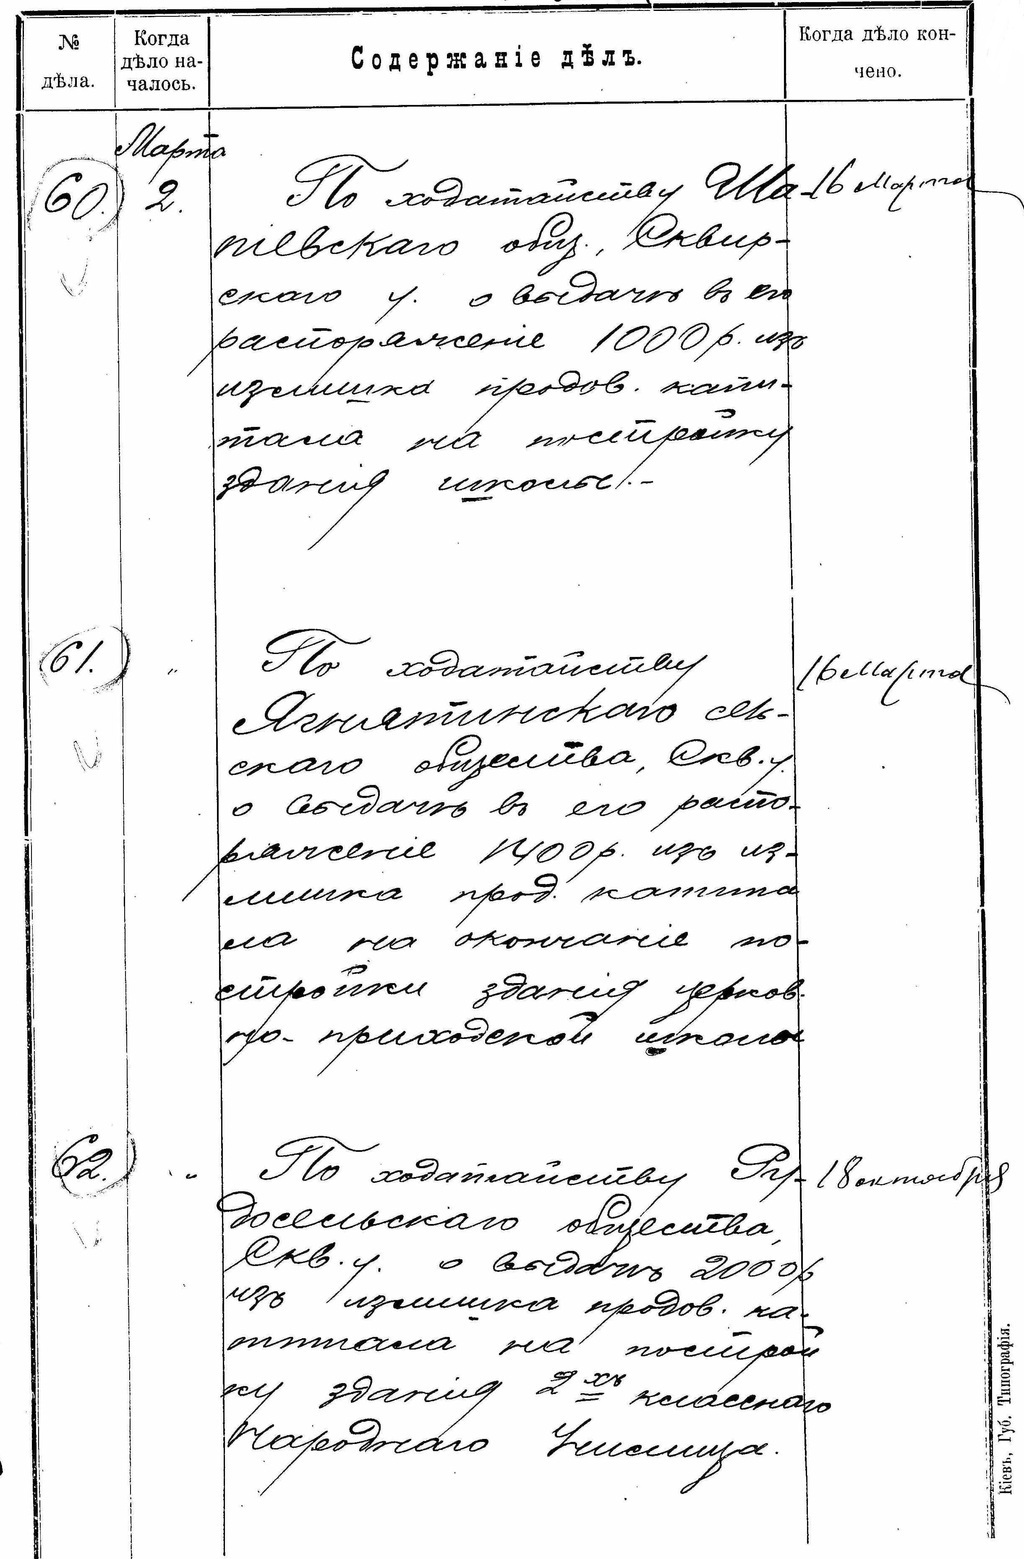 № дѣла.
Когда дѣло на-чалось.
Содержаніе дѣлъ.
Когда дѣло кон-чено.
Марта
60. 2. По ходатайству Ша- 16 Марта
піевскаго общ., Сквир-
скаго у. о выдачѣ въ его
распоряженіе 1000 р. изъ
излишка продов. капи-
тала на постройку
зданія школы.-
61. " По ходатайству 16 Марта
Ягнятинскаго сель-
скаго общества, Скв. у.
о выдачѣ въ его распо-
ряженіе 1400 р. изъ из-
лишка прод. капита
ла на окончаніе по-
стройки зданія церков.
но-приходской школы
62. " По ходатайству Ру- 18 октября
досельскаго общества,
Скв. у. о выдачѣ 2000 р
изъ излишка продов. ка-
питала на построй
ку зданія 2хъ класснаго
Народнаго Училища.
Кіевъ, Губ. Типографія.